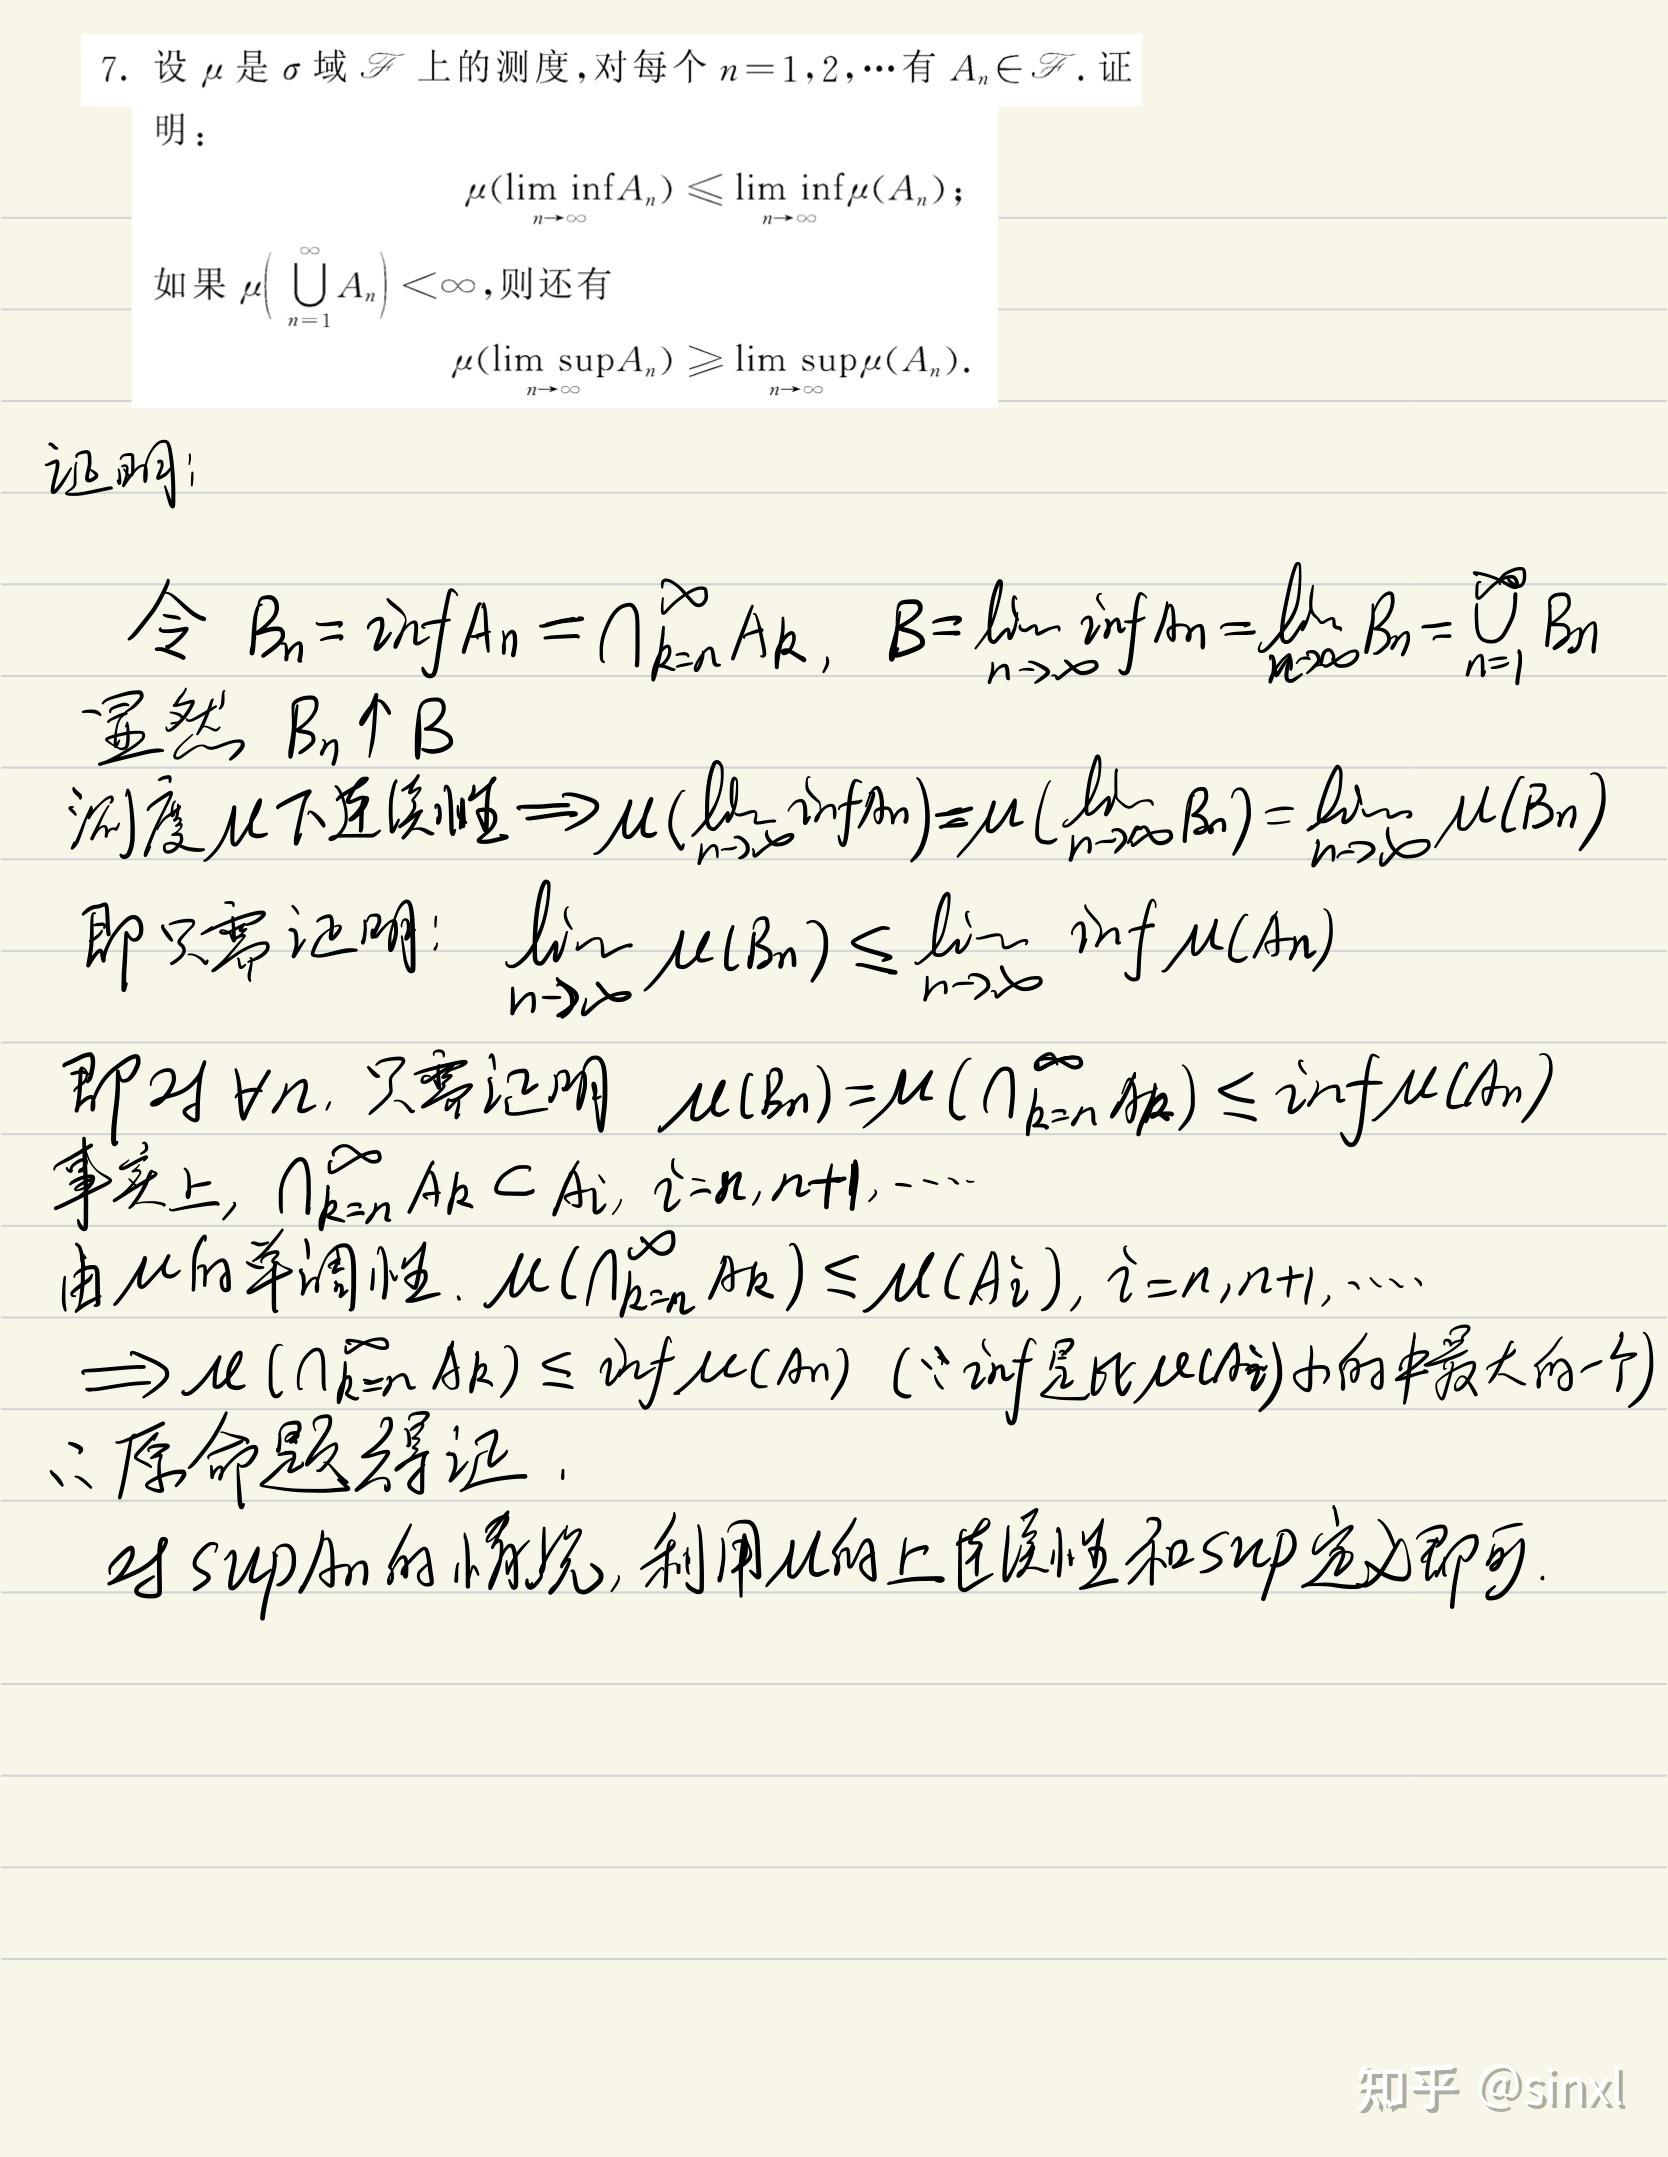 7. 设 μ 是 σ 域 ℱ 上的测度,对每个 n=1,2,…有 Aₙ∈ℱ.证
明:
μ(lim inf Aₙ) ⩽ lim inf μ(Aₙ);
n→∞ n→∞
如果 μ(⋃_{n=1}^{∞} Aₙ) <∞,则还有
μ(lim sup Aₙ) ⩾ lim sup μ(Aₙ).
n→∞ n→∞
证明:
令 Bₙ = inf Aₙ = ⋂_{k=n}^{∞} Aₖ, B = lim_{n→∞} inf Aₙ = lim_{n→∞} Bₙ = ⋃_{n=1}^{∞} Bₙ
显然 Bₙ↑B
测度μ下连续性 ⟹ μ(lim_{n→∞} inf Aₙ) = μ(lim_{n→∞} Bₙ) = lim_{n→∞} μ(Bₙ)
即只需证明: lim_{n→∞} μ(Bₙ) ≤ lim_{n→∞} inf μ(Aₙ)
即对∀n, 只需证明 μ(Bₙ) = μ(⋂_{k=n}^{∞} Aₖ) ≤ inf μ(Aₙ)
事实上, ⋂_{k=n}^{∞} Aₖ ⊂ Aᵢ, i=n, n+1, ····
由μ的单调性. μ(⋂_{k=n}^{∞} Aₖ) ≤ μ(Aᵢ), i=n, n+1, ····
⟹ μ(⋂_{k=n}^{∞} Aₖ) ≤ inf μ(Aₙ) (∵ inf是比μ(Aᵢ)小的中最大的一个)
∴原命题得证.
对 sup Aₙ 的情况, 利用μ的上连续性和sup定义即可.
知乎 @sinxl